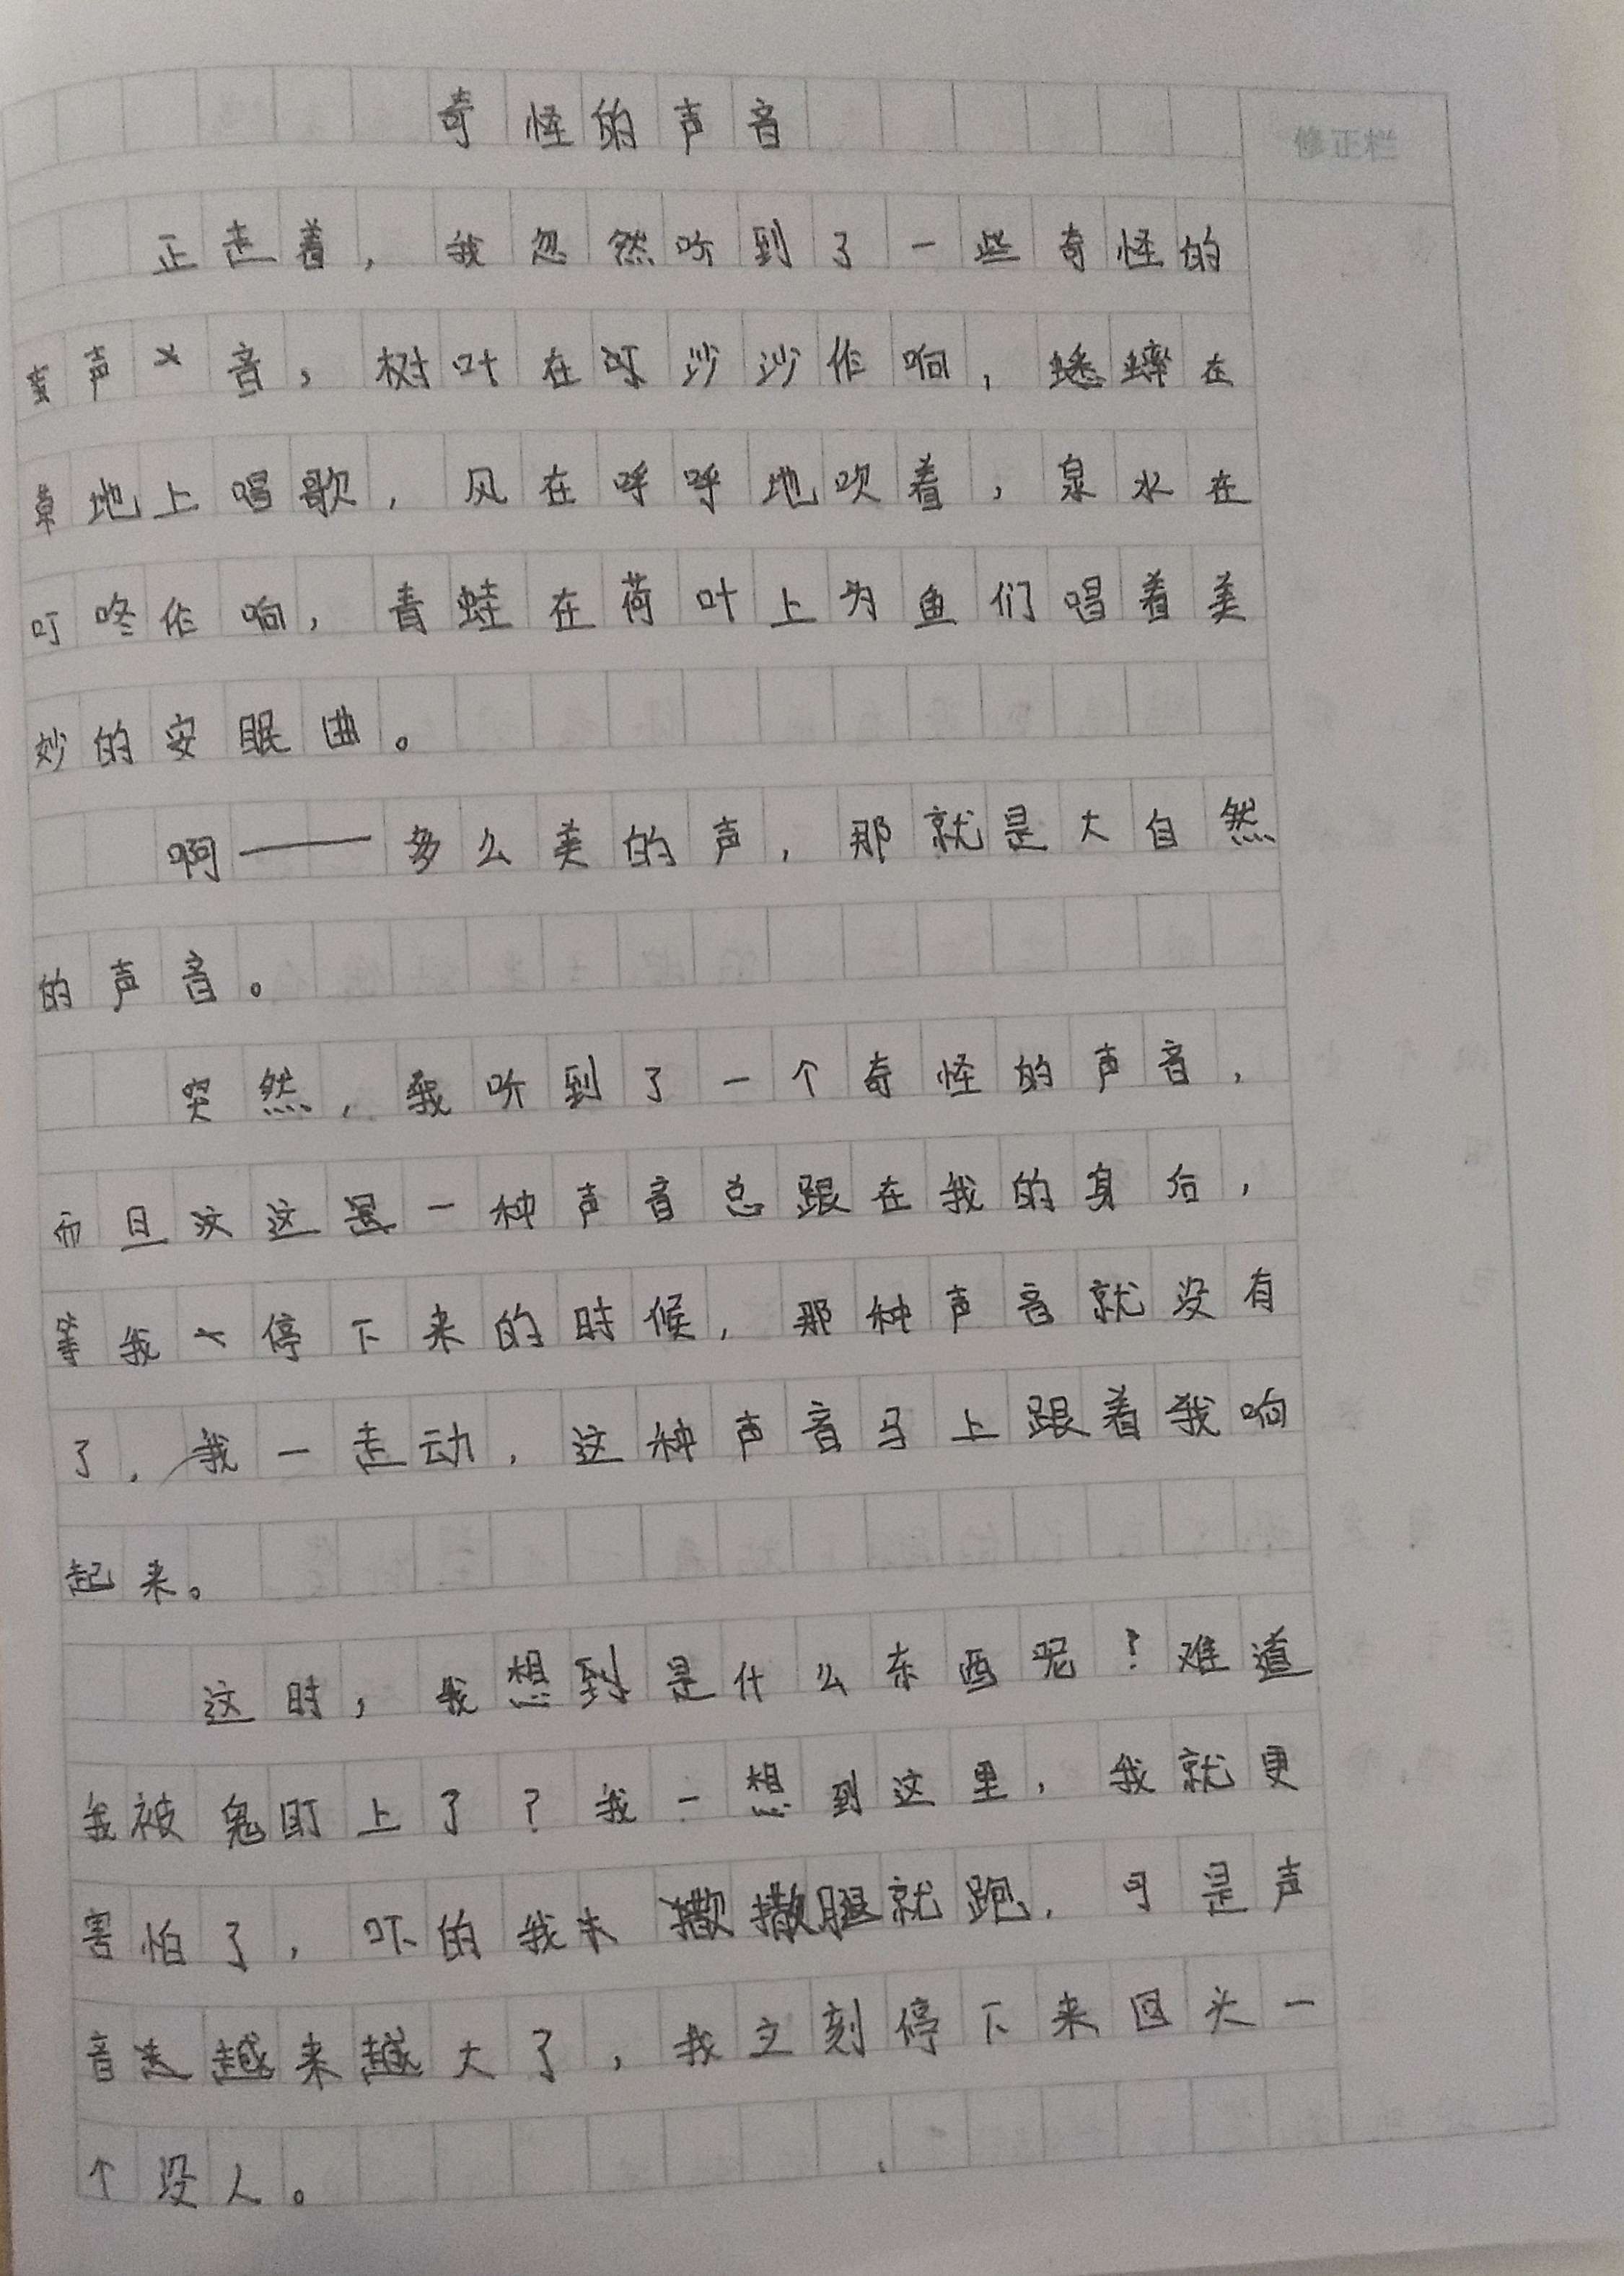 奇怪的声音
修正栏
正走着，我忽然听到了一些奇怪的
声音，树叶在沙沙作响，蟋蟀在
草地上唱歌，风在呼呼地吹着，泉水在
叮咚作响，青蛙在荷叶上为鱼们唱着美
妙的安眠曲。
啊——多么美的声，那就是大自然
的声音。
突然，我听到了一个奇怪的声音，
而且这是一种声音总跟在我的身后，
等我停下来的时候，那种声音就没有
了，我一走动，这种声音马上跟着我响
起来。
这时，我想到是什么东西呢？难道
我被鬼盯上了？我一想到这里，我就更
害怕了，吓的我撒腿就跑，可是声
音越来越大了，我立刻停下来回头一
个没人。